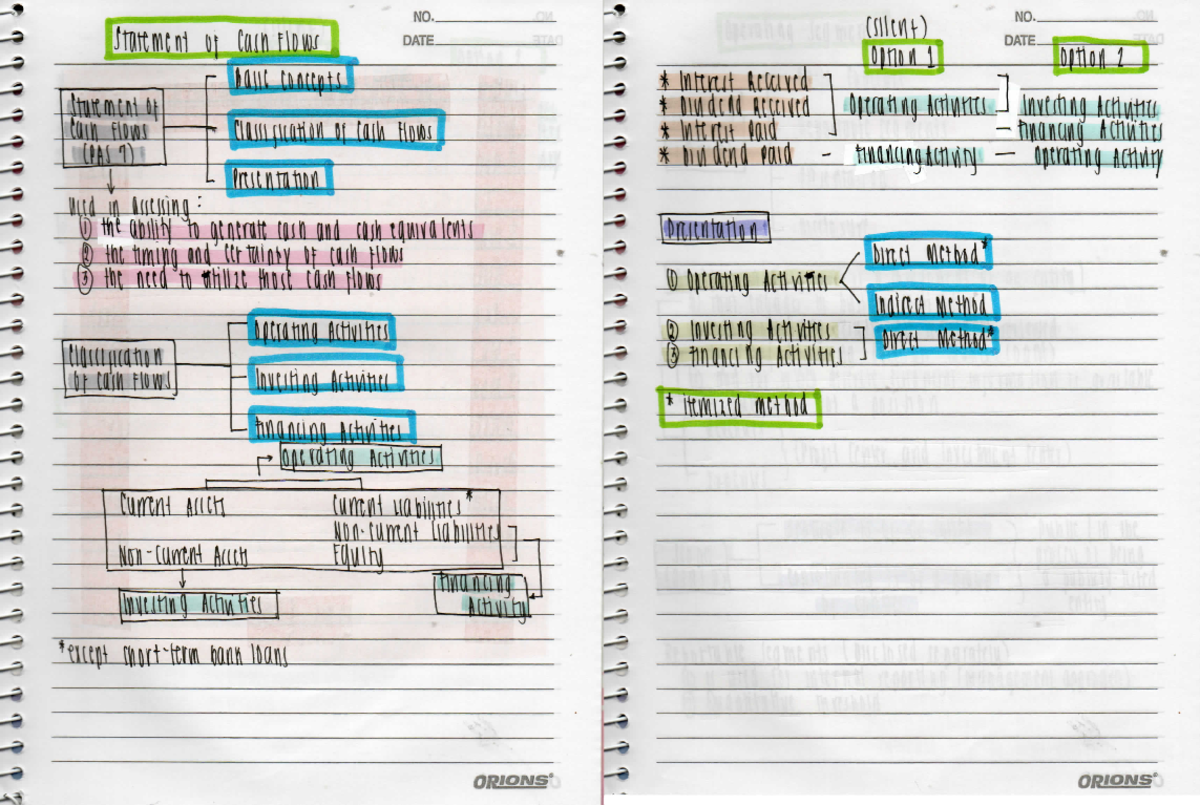 NO.
DATE
Statement of Cash Flows
Basic Concepts
Statement of
Cash Flows
(PAS 7)
Classification of Cash Flows
Presentation
Used in assessing:
① the ability to generate cash and cash equivalents
② the timing and certainty of cash flows
③ the need to utilize those cash flows
Operating Activities
Classification
of cash flows
Investing Activities
Financing Activities
Operating Activities
Current Assets Current Liabilities*
Non-current Liabilities
Non-Current Assets Equity
Financing
Activity
Investing Activities
*except short-term bank loans
ORIONS
NO.
DATE
(silent)
Option 1 Option 2
* Interest Received
* Dividend Received Operating Activities Investing Activities
* Interest Paid Financing Activities
* Dividend Paid - Financing Activity - Operating Activity
Presentation
Direct Method*
① Operating Activities
Indirect Method
② Investing Activities
③ Financing Activities Direct Method*
* itemized method
ORIONS